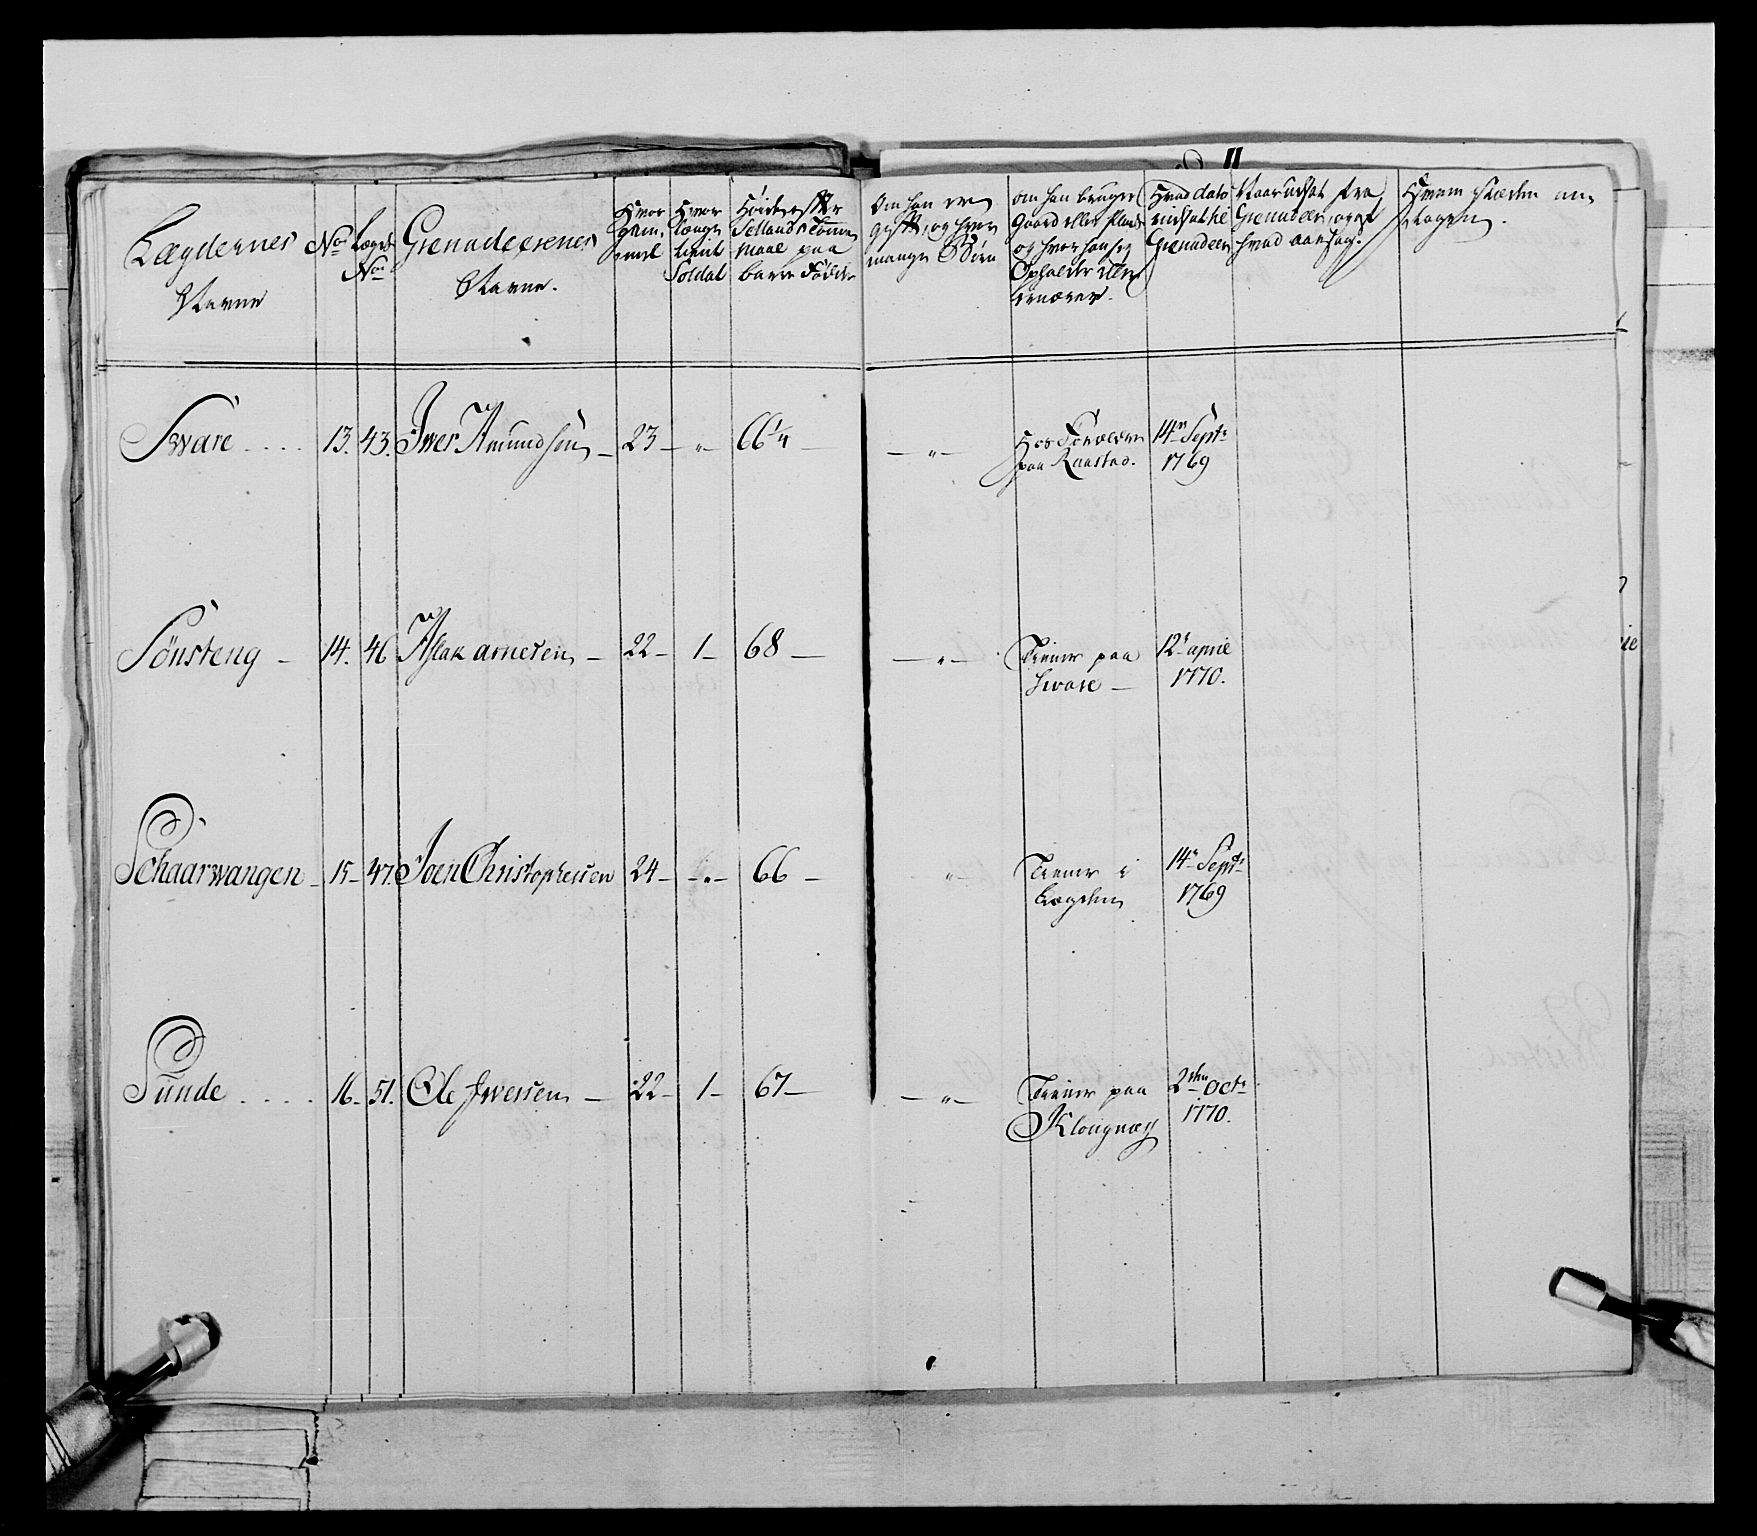 11
Lægdernes Navne
No
Lægds No
Grenadeerenes Navne.
Hvor gam̄el
Hvor længe tient Soldat
Høider efter Sellands Tom̄e Maal paa bare Fødder
Om han er gift, og hvor mange Børn
om han bruger Gaard eller Plads og hvor han sig Opholder eller ernærer.
Hvad dato indsat til Grenadeer
Naar udsat fra Grenadeer, og af hvad aarsag.
Hvem stæden an- tagen.
Sware .... 13. 43. Iwer Amundsen – 23 – " – 66 1/4 – – " – Hos Forældre paa Raastad. 14n Septr 1769
Sönsteng – 14. 46 Aslak arnesen – 22 – 1 – 68 – – " – Tiener paa Sware – 12t april 1770.
Schaarwangen – 15 – 47. Joen Christophersen 24 – – " – 66 – " – Tiener i Lægden 14n Septr 1769
Sunde .... 16 – 51. Ole Iwersen – 22 – 1 – 67 – – " – Tiener paa Klougnæss 2den octr 1770.